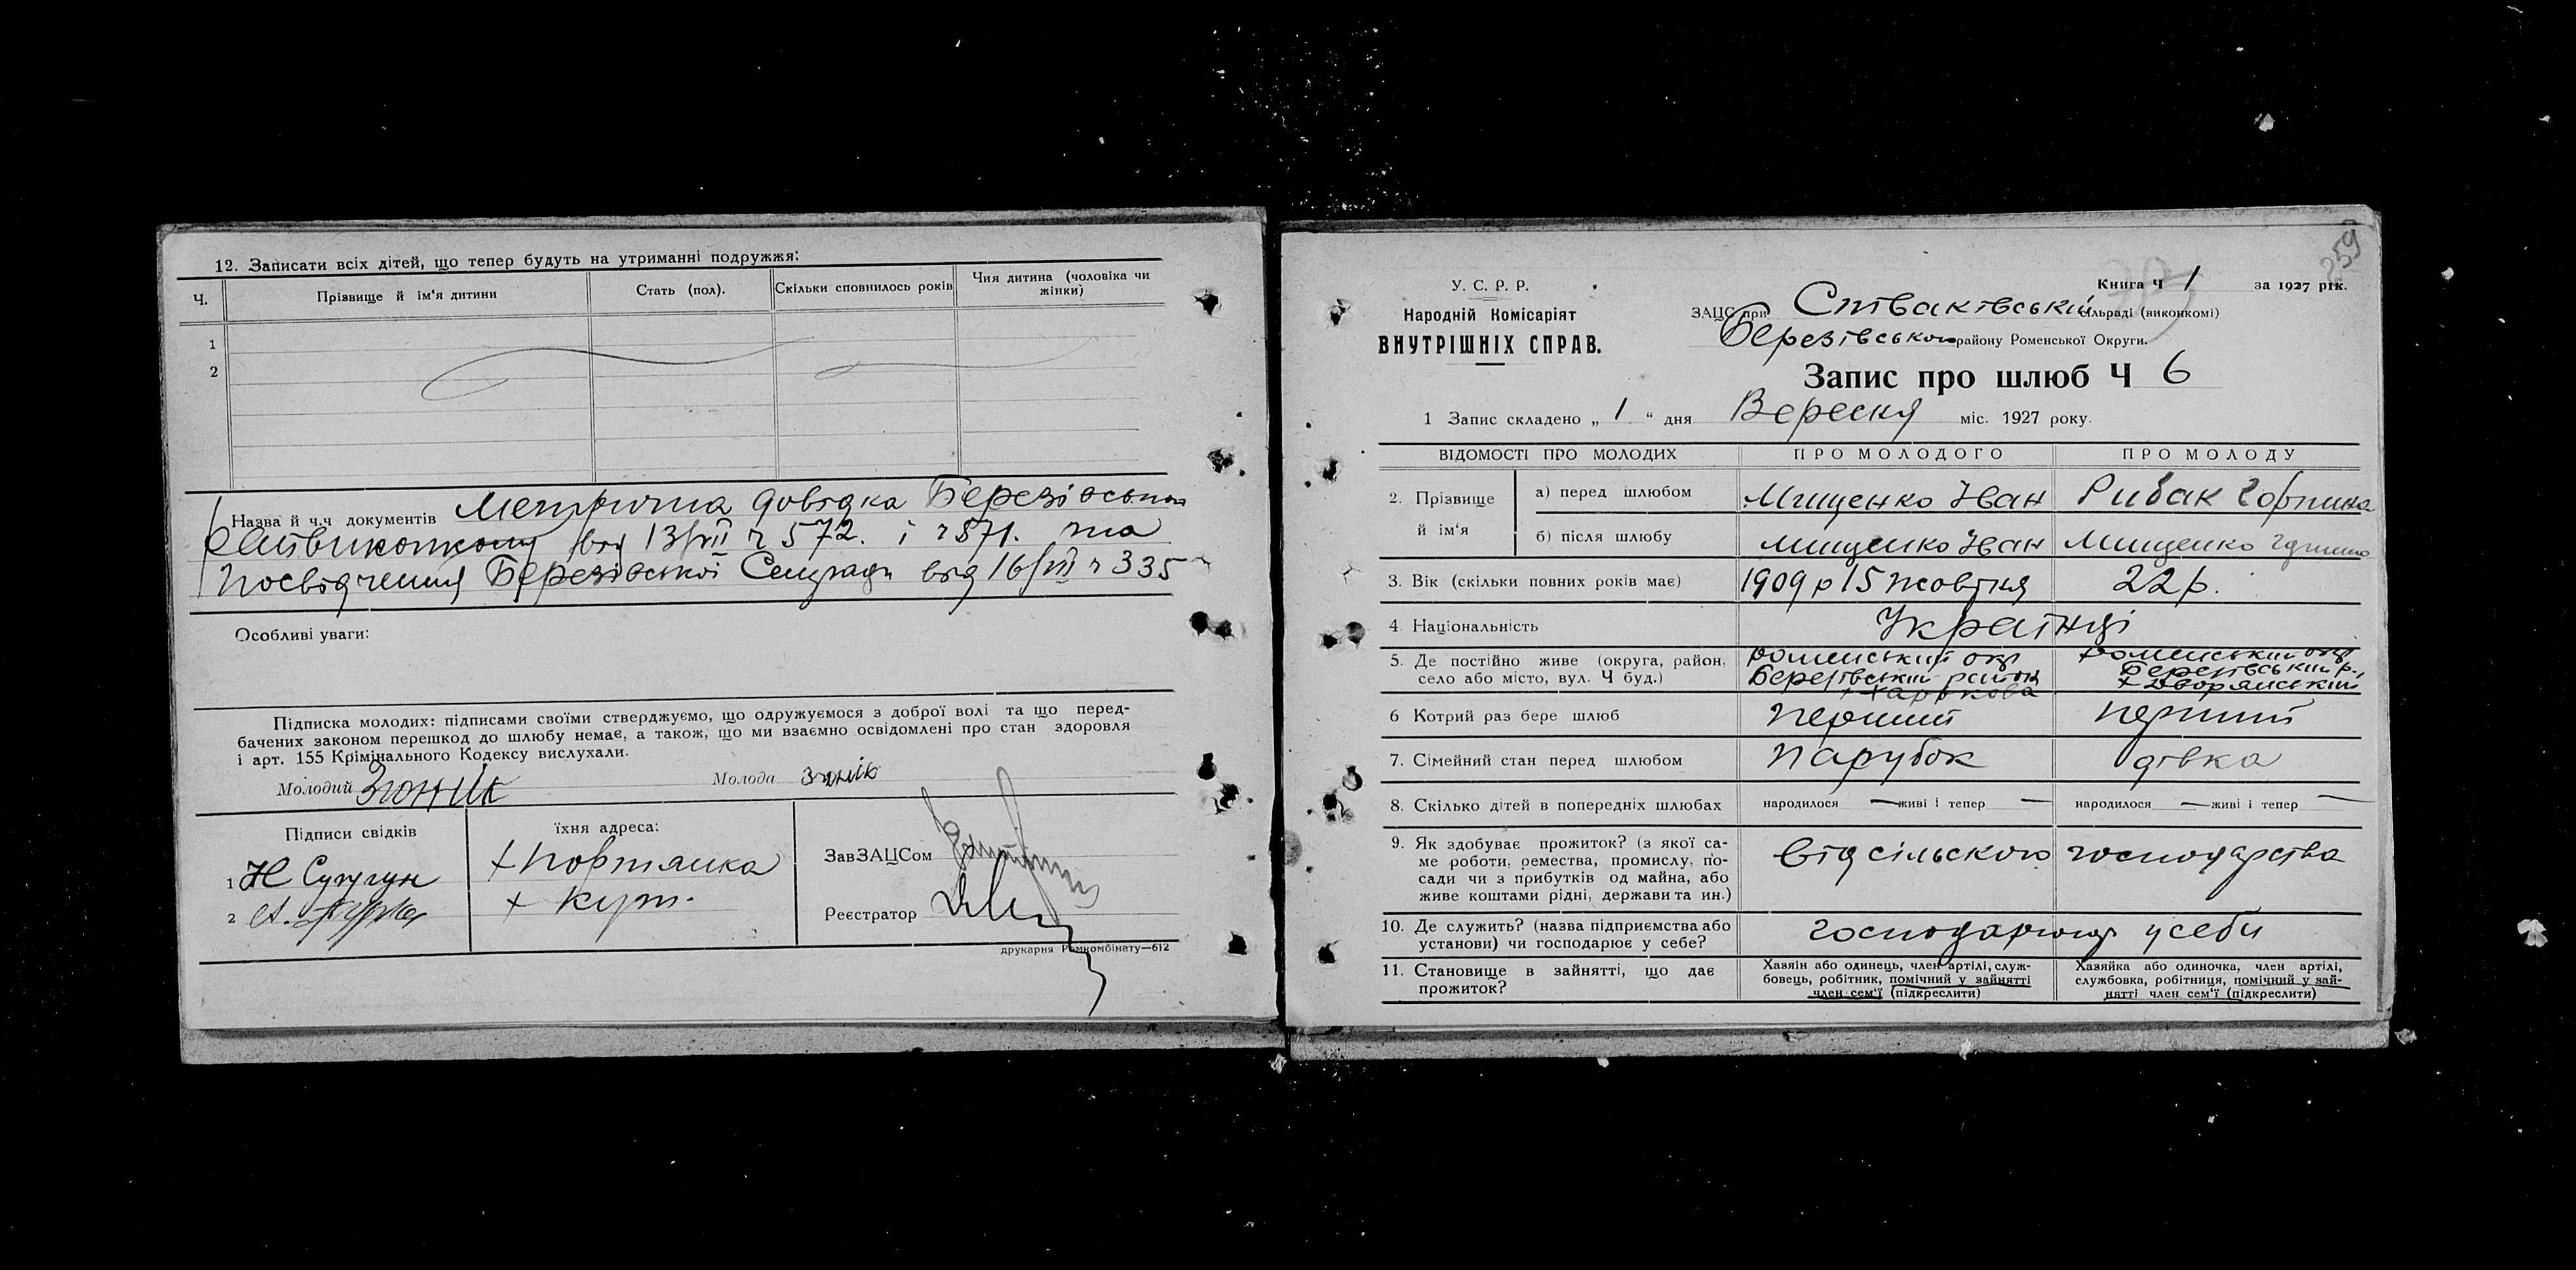 12. Записати всіх дітей, що тепер будуть на утриманні подружжя:
Ч. Прізвище й ім'я дитини Стать (пол). Скільки сповнилось років Чия дитина (чоловіка чи жінки)
1
2
Назва й ч.ч документів Метрична довідка Березівського
Райвиконкому від 13/VII ч 572. і ч 571. та
Посвідчення Березівської Сельради від 16/VII ч 335
Особливі уваги:
Підписка молодих: підписами своїми стверджуємо, що одружуємося з доброї волі та що перед-
бачених законом перешкод до шлюбу немає, а також, що ми взаємно освідомлені про стан здоровля
і арт. 155 Крімінального Кодексу вислухали.
Молодий Молода
Підписи свідків їхня адреса:
1 Н х Портянка
2 А. х Кут.
ЗавЗАЦСом
Реєстратор
друкарня Ромкомбінату—612
259
У. С. Р. Р.
Народній Комісаріят
ВНУТРІШНІХ СПРАВ.
Книга Ч 1 за 1927 рік.
ЗАЦС при сільраді (виконкомі)
Березівського району Роменської Округи.
Запис про шлюб Ч 6
1 Запис складено „ 1 “ дня Вересня міс. 1927 року.
ВІДОМОСТІ ПРО МОЛОДИХ ПРО МОЛОДОГО ПРО МОЛОДУ
2. Прізвище й ім'я
а) перед шлюбом Мищенко Іван Рибак Горпина
б) після шлюбу Мищенко Іван Мищенко Горпина
3. Вік (скільки повних років має) 1909 р 15 жовтня 22 р.
4. Національність Українці
5. Де постійно живе (округа, район, Роменський окр Роменський окр
село або місто, вул. Ч буд.) Березівський район Березівський р.
х Харькова х Дворянський
6 Котрий раз бере шлюб перший перший
7. Сімейний стан перед шлюбом парубок дівка
8. Скілько дітей в попередніх шлюбах народилося — живі і тепер — народилося — живі і тепер —
9. Як здобуває прожиток? (з якої са- від сільского господарства
ме роботи, ремества, промислу, по-
сади чи з прибутків од майна, або
живе коштами рідні, держави та ин.)
10. Де служить? (назва підприємства або господарюют у себи
установи) чи господарює у себе?
11. Становище в зайнятті, що дає прожиток?
Хазяін або одинець, член артілі, служ-
бовець, робітник, помічний у зайнятті
член сем'ї (підкреслити)
Хазяйка або одиночка, член артілі,
службовка, робітниця, помічний у зай-
нятті член сем'ї (підкреслити)